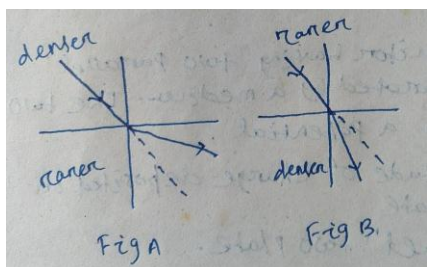 denser
rarer
Fig A
rarer
denser
Fig B.